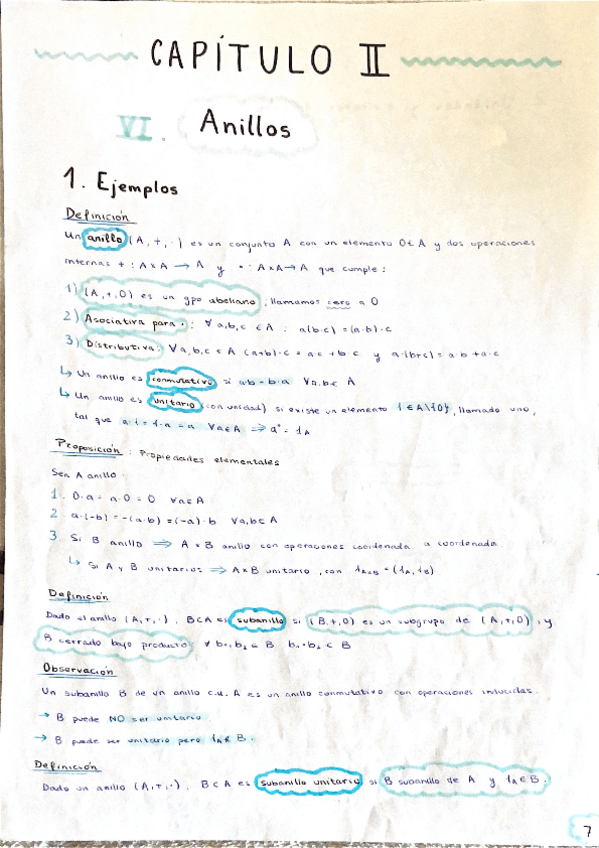 CAPÍTULO II
VI. Anillos
1. Ejemplos
Definición
Un anillo (A, +, ·) es un conjunto A con un elemento 0 ∈ A y dos operaciones
internas + : A×A → A y · : A×A → A que cumple:
1) (A, +, 0) es un gpo abeliano, llamamos cero a 0
2) Asociativa para · : ∀ a,b,c ∈ A : a(b·c) = (a·b)·c
3) Distributiva: ∀ a,b,c ∈ A (a+b)·c = a·c + b·c y a·(b+c) = a·b + a·c
↳ Un anillo es conmutativo si a·b = b·a ∀a,b ∈ A
↳ Un anillo es unitario (con unidad) si existe un elemento 1 ∈ A\{0}, llamado uno,
tal que a·1 = 1·a = a ∀a∈A ⟹ a⁰ = 1_A
Proposición: Propiedades elementales
Sea A anillo
1. 0·a = a·0 = 0 ∀a∈A
2. a·(-b) = -(a·b) = (-a)·b ∀a,b∈A
3. Si B anillo ⟹ A×B anillo con operaciones coordenada a coordenada
↳ Si A y B unitarios ⟹ A×B unitario, con 1_A×B = (1_A, 1_B)
Definición
Dado el anillo (A, +, ·), B⊂A es subanillo si (B, +, 0) es un subgrupo de (A, +, 0), y
B cerrado bajo producto: ∀ b₁, b₂ ∈ B b₁·b₂ ∈ B
Observación
Un subanillo B de un anillo c.u. A es un anillo conmutativo con operaciones inducidas.
→ B puede NO ser unitario.
→ B puede ser unitario pero 1_A ∉ B.
Definición
Dado un anillo (A, +, ·), B⊂A es subanillo unitario si B subanillo de A y 1_A ∈ B.
7